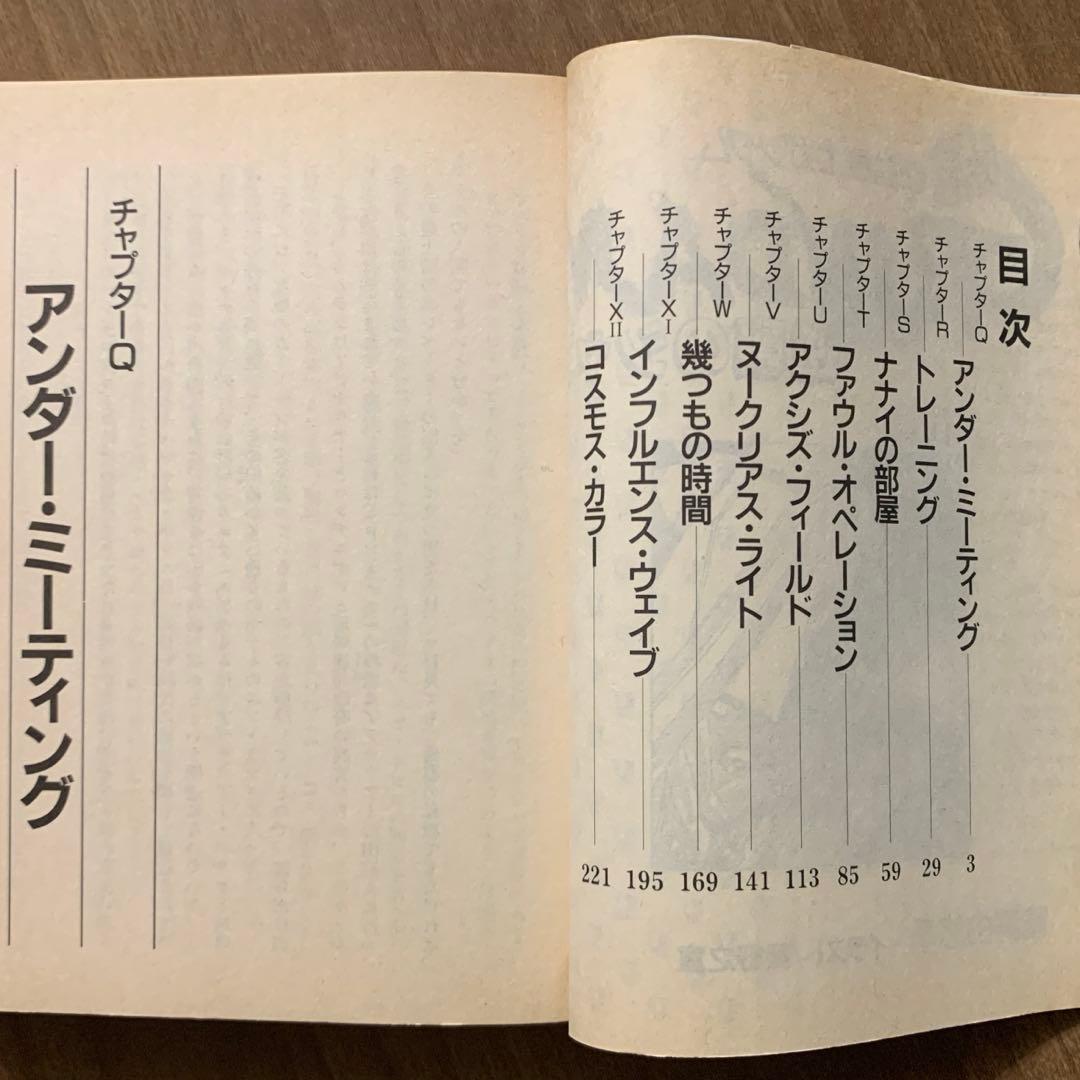 目次
チャプターQ アンダー・ミーティング 3
チャプターR トレーニング 29
チャプターS ナナイの部屋 59
チャプターT ファウル・オペレーション 85
チャプターU アクシズ・フィールド 113
チャプターV ヌークリアス・ライト 141
チャプターW 幾つもの時間 169
チャプターXI インフルエンス・ウェイブ 195
チャプターXII コスモス・カラー 221
チャプターQ
アンダー・ミーティング